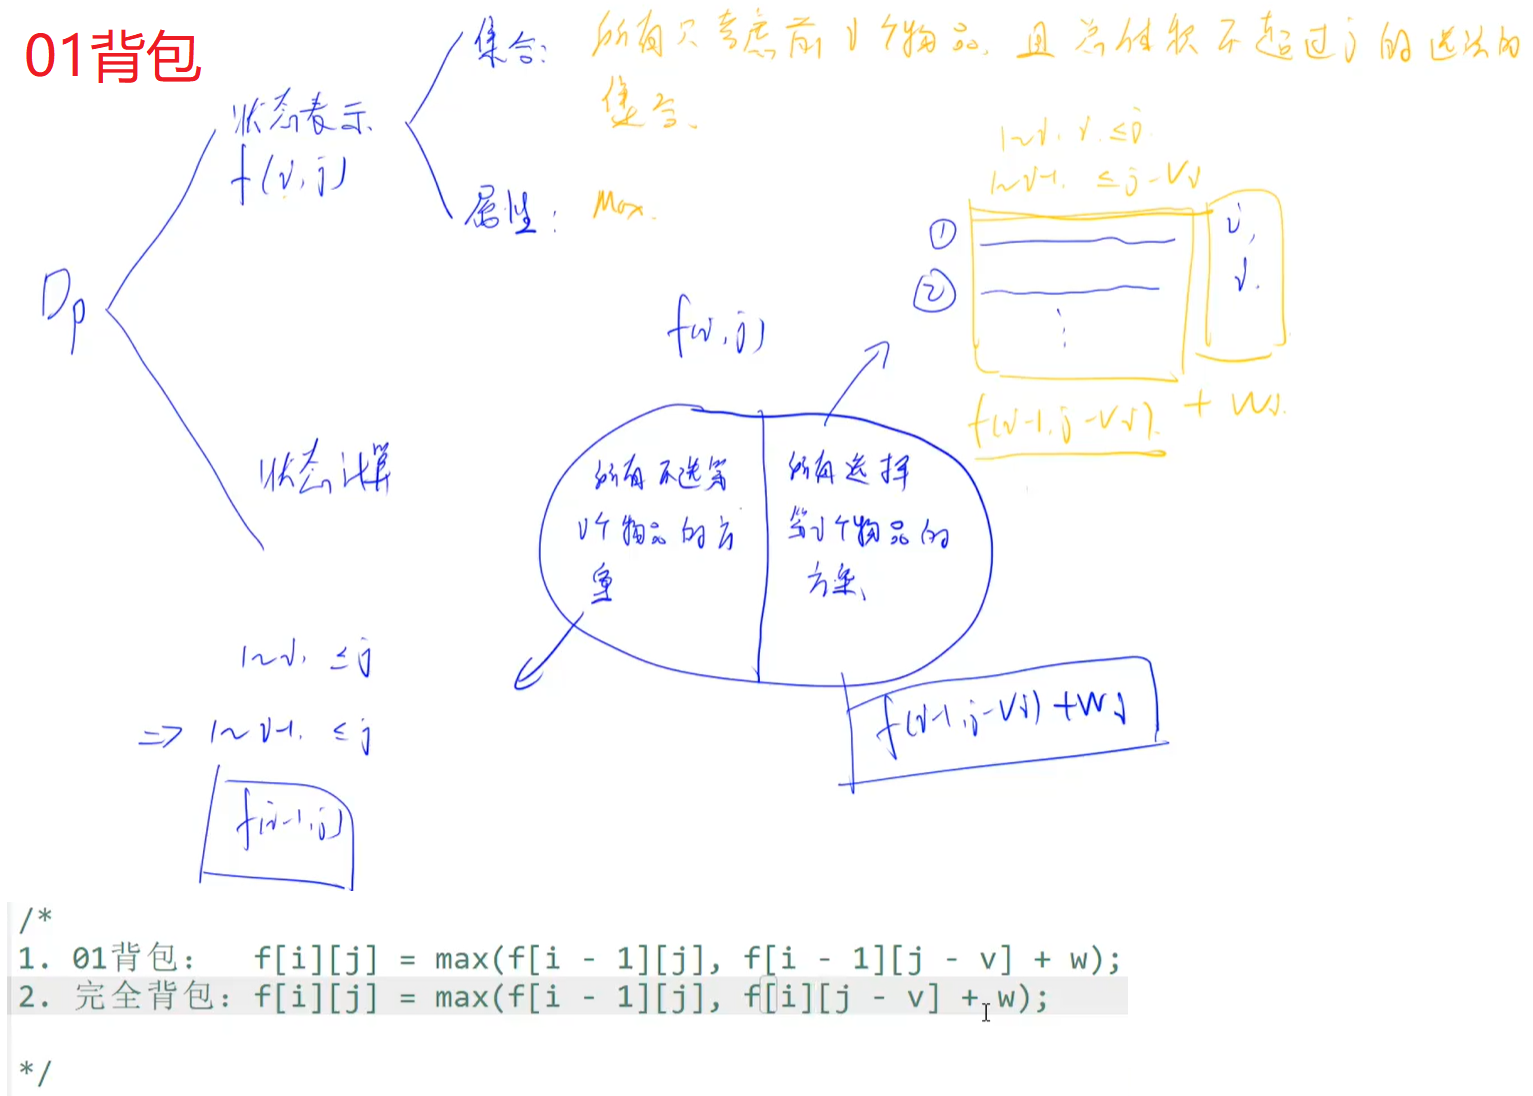 01背包
集合: 所有只考虑前i个物品, 且总体积不超过j的选法的
集合、
状态表示
f(i,j)
属性: Max.
1~i, ≤j
1~i-1, ≤j-Vi
①
②
i,
i.
⋮
f(i-1,j-Vi). + Wi.
Dp
f(i,j)
状态计算
所有不选第
i个物品的方
案
所有选择
第i个物品的
方案、
1~i, ≤j
⇒ 1~i-1, ≤j
f(i-1,j)
f(i-1,j-Vi)+Wi
/*
1. 01背包: f[i][j] = max(f[i - 1][j], f[i - 1][j - v] + w);
2. 完全背包: f[i][j] = max(f[i - 1][j], f[i][j - v] + w);
*/